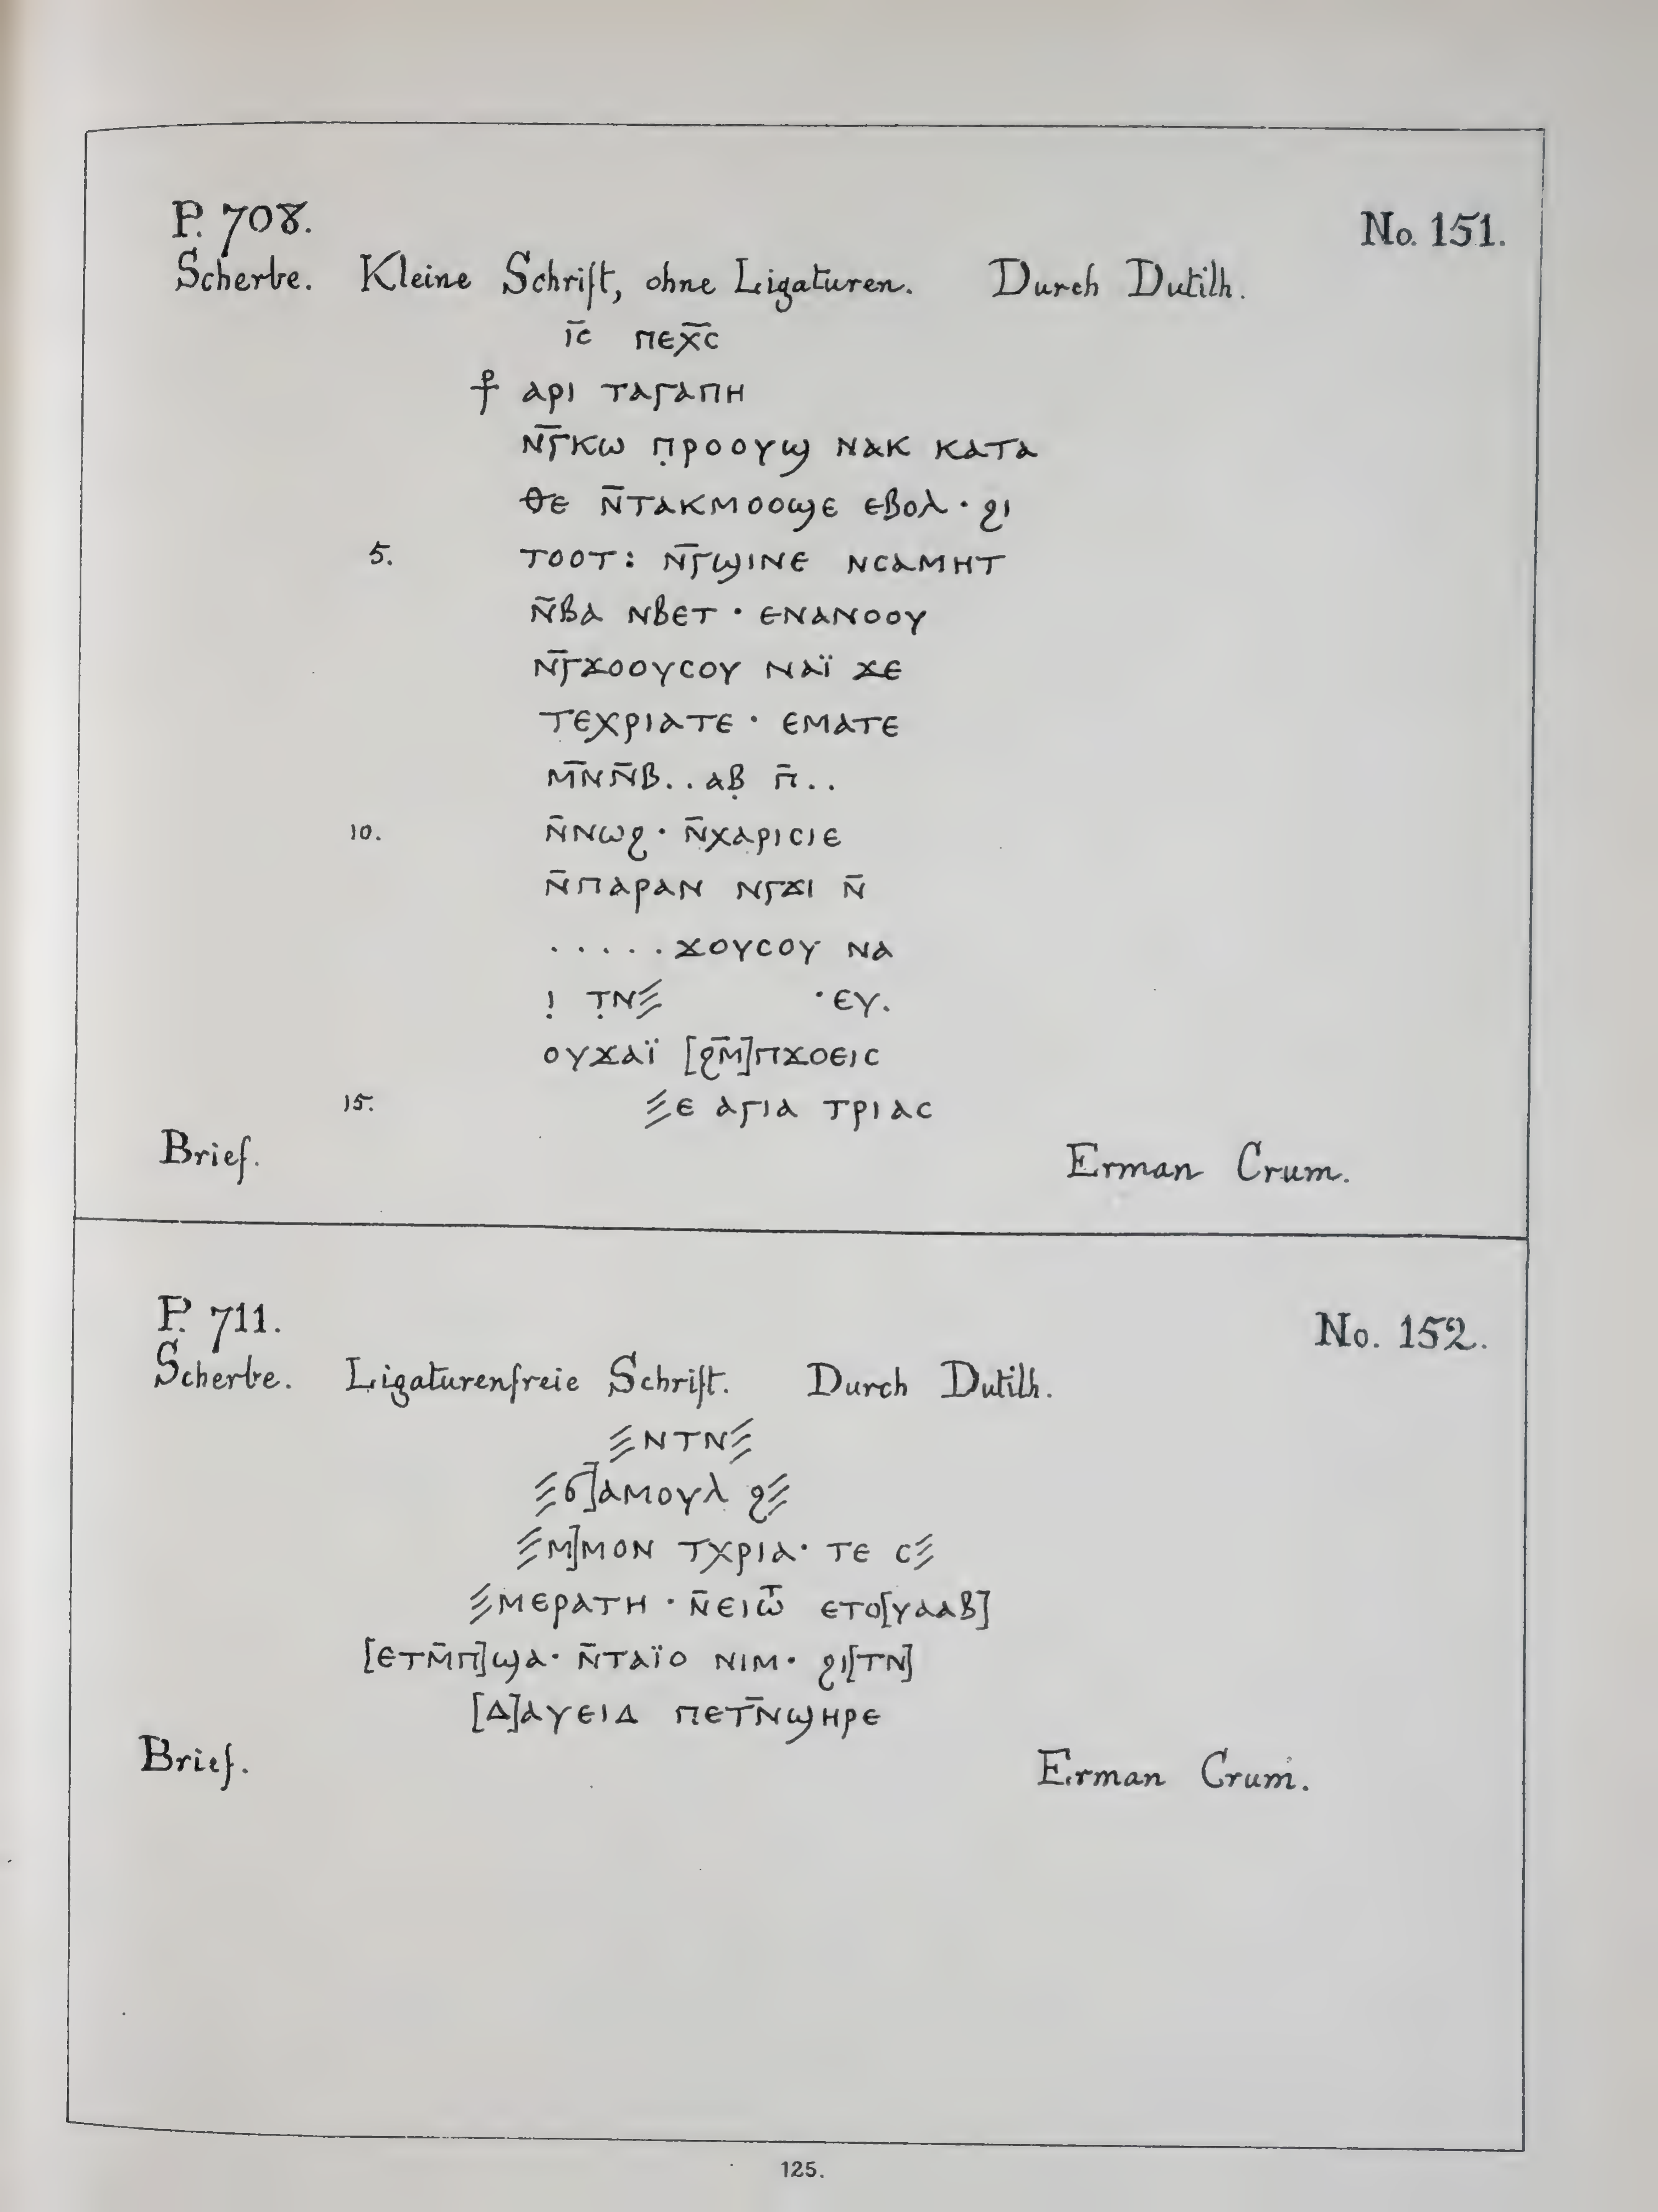 P. 708.
No. 151.
Scherbe. Kleine Schrift, ohne Ligaturen. Durch Dutilh.
ⲓ̅ⲥ̅ ⲡⲉⲭ̅ⲥ̅
⳨ ⲁⲣⲓ ⲧⲁⲅⲁⲡⲏ
ⲛ̅ⲅ̅ⲕⲱ ⲡ̣ⲣⲟⲟⲩϣ ⲛⲁⲕ ⲕⲁⲧⲁ
ⲑⲉ ⲛ̅ⲧⲁⲕⲙⲟⲟϣⲉ ⲉⲃⲟⲗ · ϩⲓ
5. ⲧⲟⲟⲧ : ⲛ̅ⲅ̅ϣⲓⲛⲉ ⲛⲥⲁⲙⲏⲧ
ⲛ̅ⲃⲁ ⲛⲃⲉⲧ · ⲉⲛⲁⲛⲟⲟⲩ
ⲛ̅ⲅ̅ϫⲟⲟⲩⲥⲟⲩ ⲛⲁⲓ̈ ϫⲉ
ⲧⲉⲭⲣⲓⲁⲧⲉ · ⲉⲙⲁⲧⲉ
ⲙ̅ⲛ̅ⲛ̅ⲃ..ⲁⲃ̣ ⲡ̅..
10. ⲛ̅ⲛⲱϩ · ⲛ̅ⲭⲁⲣⲓⲥⲓⲉ
ⲛ̅ⲡⲁⲣⲁⲛ ⲛⲅϫⲓ ⲛ̅
.....ϫⲟⲩⲥⲟⲩ ⲛⲁ
ⲓ̣ ⲧ̣ⲛ⫽ ·ⲉⲩ.
ⲟⲩϫⲁⲓ̈ [ϩⲙ̅]ⲡϫⲟⲉⲓⲥ
15. ⫽ⲉ ⲁⲅⲓⲁ ⲧⲣⲓⲁⲥ
Brief.
Erman Crum.
P. 711.
No. 152.
Scherbe. Ligaturenfreie Schrift. Durch Dutilh.
⫽ⲛⲧⲛ⫽
⫽ϭ]ⲁⲙⲟⲩⲗ ϩ⫽
⫽ⲙ]ⲙⲟⲛ ⲧⲭⲣⲓⲁ· ⲧⲉ ⲥ⫽
⫽ⲙⲉⲣⲁⲧⲏ · ⲛ̅ⲉⲓⲱ̅ⲧ ⲉⲧⲟ[ⲩⲁⲁⲃ]
[ⲉⲧⲙ̅ⲡ]ϣⲁ· ⲛ̅ⲧⲁⲓ̈ⲟ ⲛⲓⲙ· ϩⲓ[ⲧⲛ]
[ⲇ]ⲁⲩⲉⲓⲇ ⲡⲉⲧⲛ̅ϣⲏⲣⲉ
Brief.
Erman Crum.
125.